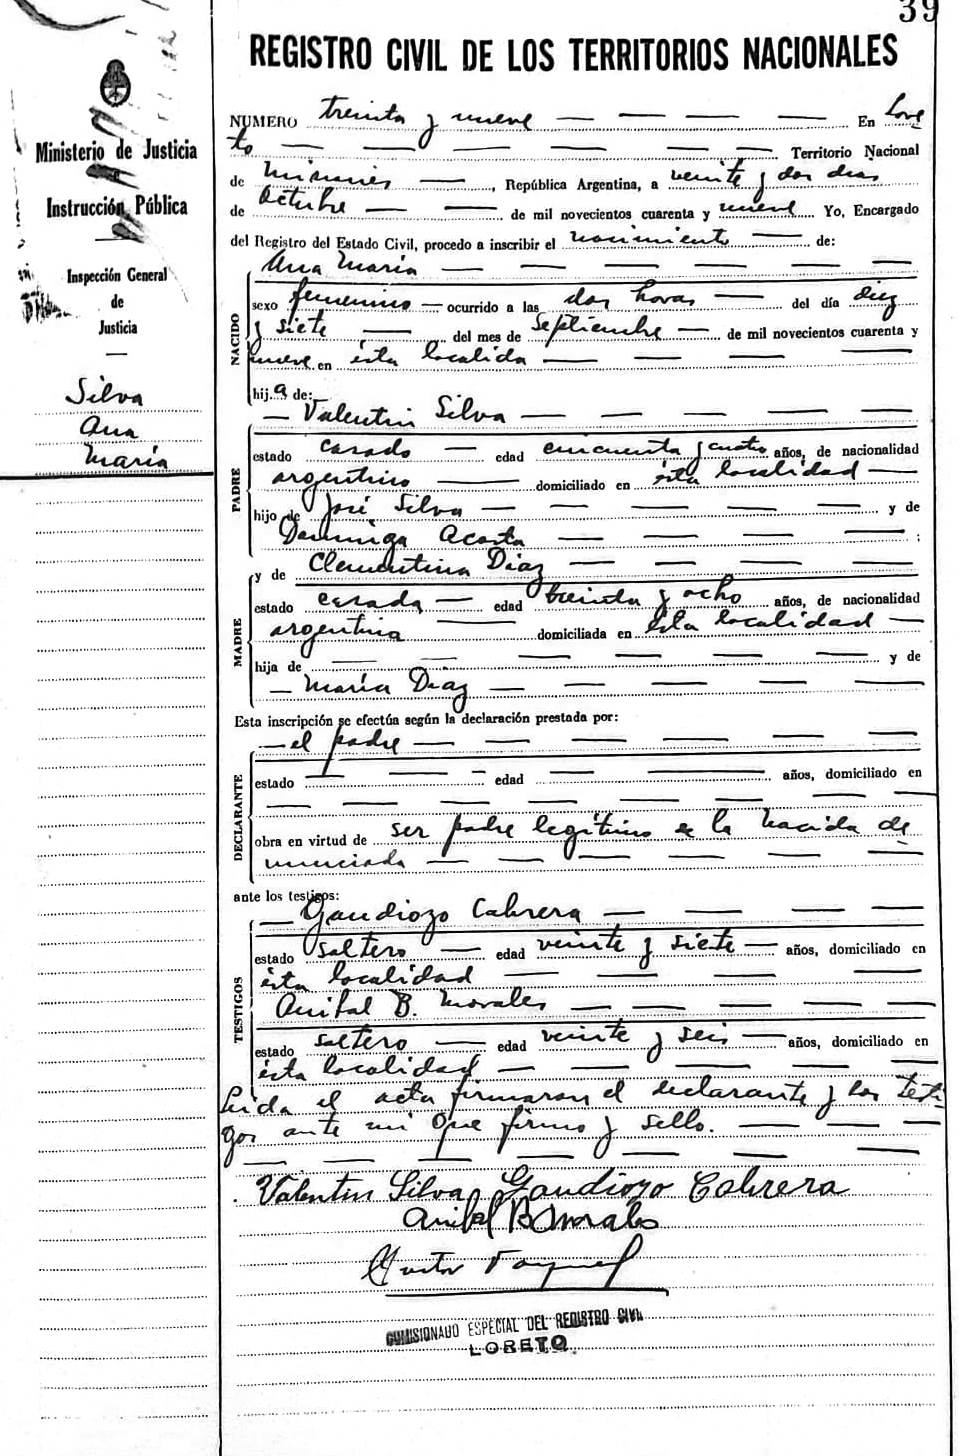 39
REGISTRO CIVIL DE LOS TERRITORIOS NACIONALES
Ministerio de Justicia
e
Instrucción Pública
Inspección General
de
Justicia
Silva
Ana
María
NUMERO treinta y nueve — — — — En Lore
to — — — — — — — Territorio Nacional
de Misiones —, República Argentina, a veinte y dos dias
de Octubre — — de mil novecientos cuarenta y nueve Yo, Encargado
del Registro del Estado Civil, procedo a inscribir el nacimiento — de:
Ana María — — — — — — —
NACIDO
sexo femenino — ocurrido a las dos horas — del día diez
y siete — del mes de Septiembre — de mil novecientos cuarenta y
nueve en ésta localida — — — —
hija de:
— Valentin Silva — — — — —
PADRE
estado casado — edad cincuenta y cuatro años, de nacionalidad
argentino — domiciliado en ésta localidad —
hijo de José Silva — — — — — y de
Dominga Acosta — — — — — ;
y de Clementina Diaz — — — — —
MADRE
estado casada — edad treinta y ocho años, de nacionalidad
argentina — domiciliada en ésta localidad —
hija de — — — — — — y de
— María Diaz — — — — — —
Esta inscripción se efectúa según la declaración prestada por:
— el padre — — — — — —
DECLARANTE
estado — — — edad — — años, domiciliado en
— — — — — — — —
obra en virtud de ser padre legítimo de la nacida de
nunciada — — — — — — —
ante los testigos:
— Gaudiozo Cabrera — — — —
TESTIGOS
estado soltero — edad veinte y siete — años, domiciliado en
ésta localidad — — — —
Anibal B. Morales — — — — —
estado soltero — edad veinte y seis — años, domiciliado en
ésta localidad — — — — —
Leida el acta firmaron el declarante y los testi
gos ante mi que firmo y sello. — — —
— — — — — — —
Valentin Silva Gaudiozo Cabrera
Anibal B Morales
COMISIONADO ESPECIAL DEL REGISTRO CIVIL
LORETO